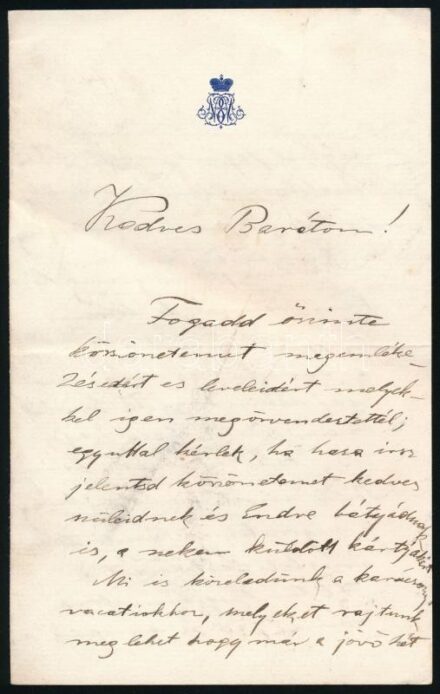 Kedves Barátom!
Fogadd őszinte
köszönetemet megemléke-
zésedért es leveleidért melyek-
kel igen megörvendeztettél;
egyuttal kérlek, ha haza irsz
jelentsd köszönetemet kedves
szüleidnek és Endre bátyádnak
is, a nekem küldött kártyákért
Mi is közeledünk a karácsonyi
vacatiokhoz, melyeket rajtunk
meg lehet hogy már a jövő hét